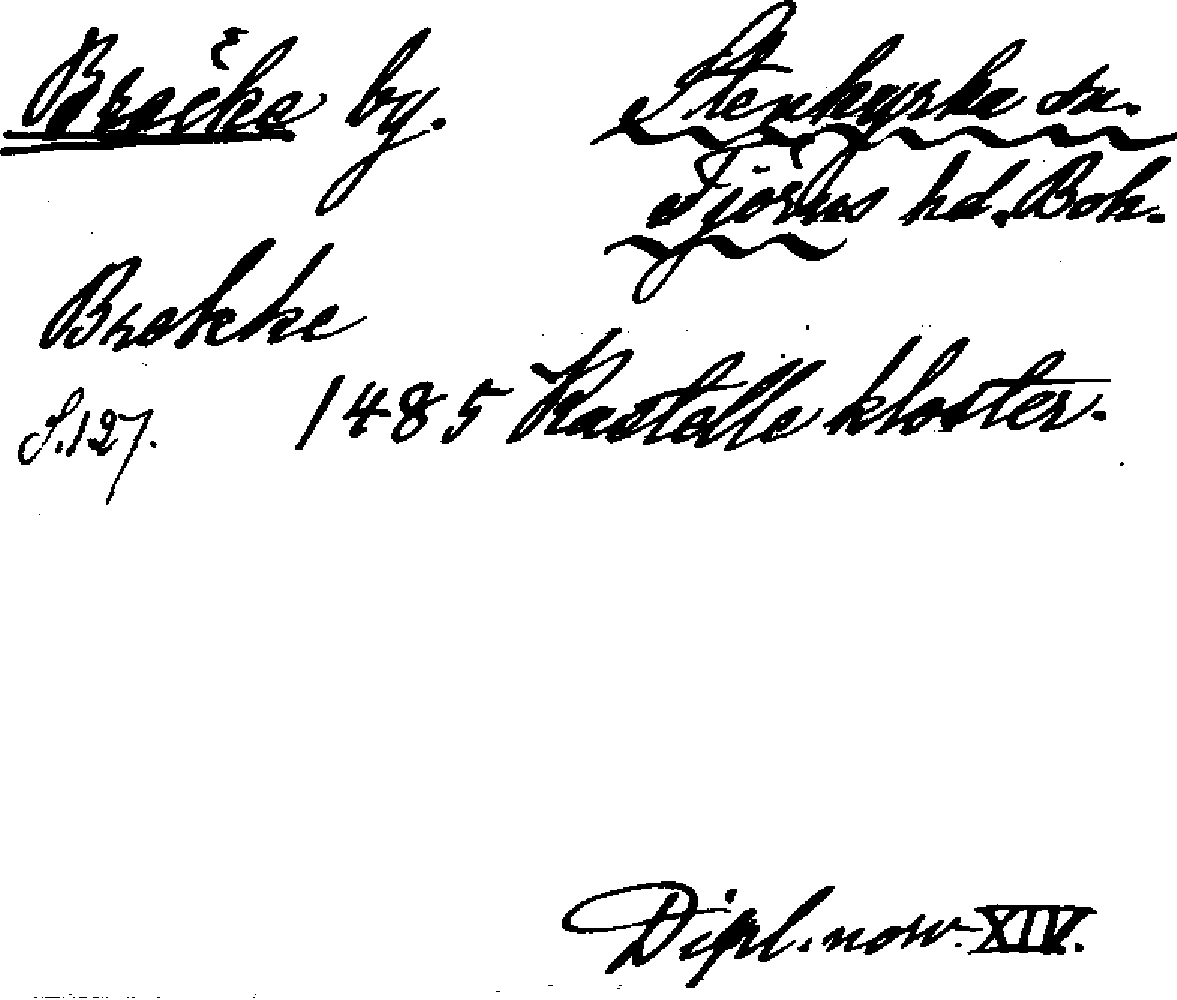 Bräcke by. Stenkyrka sn.
Tjörns hd. Boh.
Brekke
S.127. 1485 Kastelle kloster.
Dipl. norv. XIV.